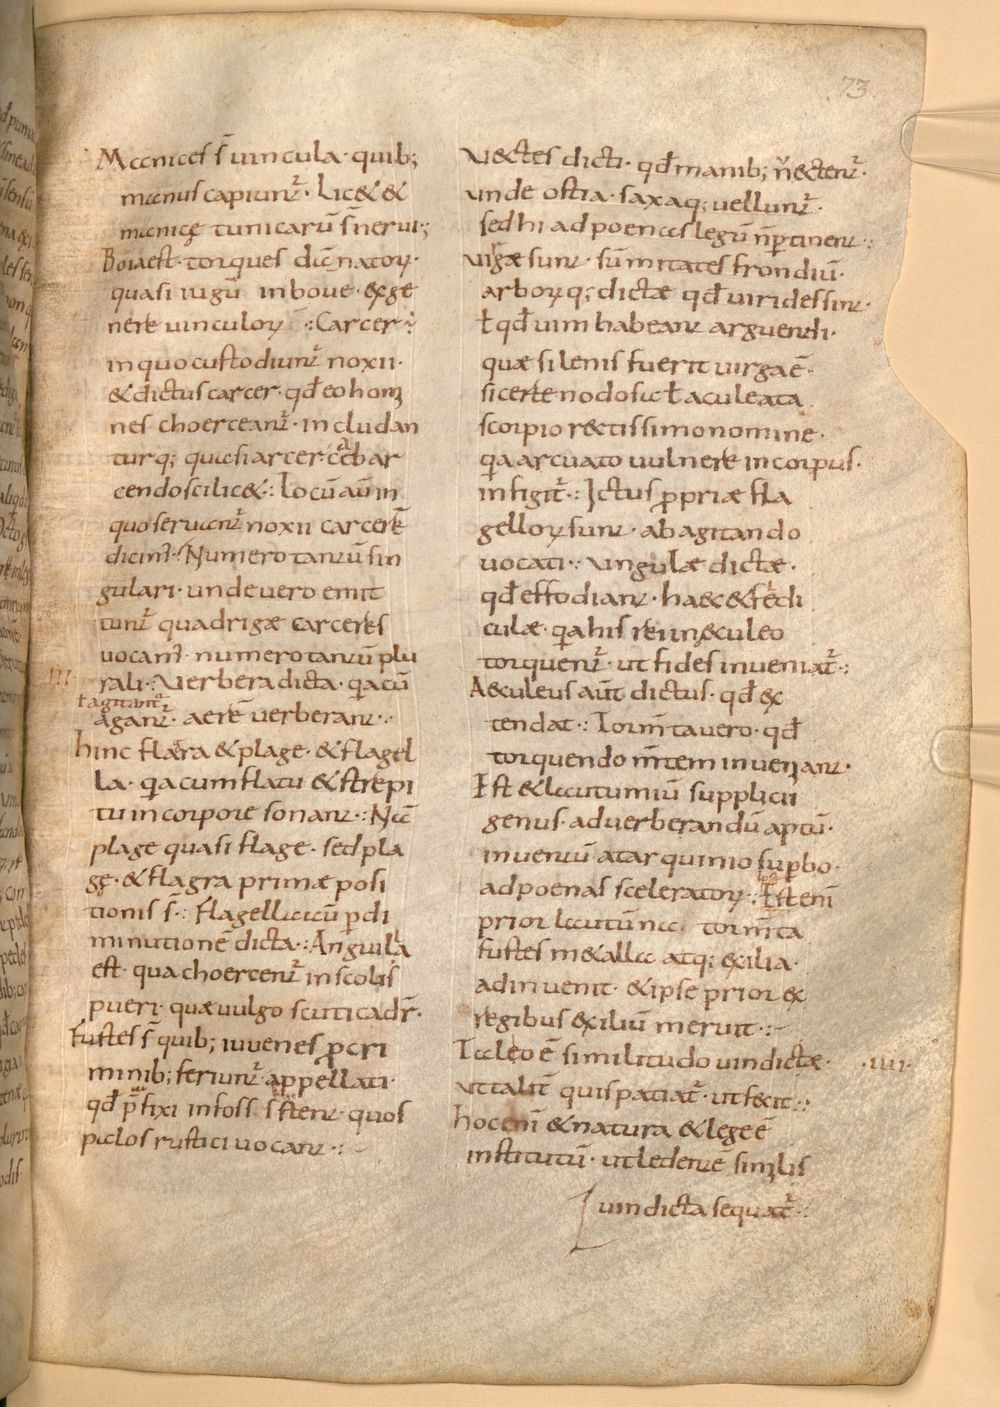 73
Manices s̄ uincula· quib;
manus capiunt̄· Lic& &
manicę tunicarū s̄ nerui;
Boia est· torques dānatorꝝ·
quasi iugū in boue· ex ge
nere uinculorꝝ ·: Carcer ÷
in quo custodiunt̄ noxii·
& dictus carcer· qđ eo homi
nes choerceant̄· includan
turq; quasi arcer ab ar
cendo scilic& ·: Locū aūt in
quo seruant̄ noxii carcerē
dicim̄· Numero tantū sin
gulari· unde uero emit
tunt̄ quadrigæ carceres
uocant̄ numero tantū plu
III rali ·: Verbera dicta· quia cū
ł agitant̄
agant̄· aerē uerberant ·:
hinc flagra & plage· & flagel
la· quia cum flatu & strepi
tu in corpore sonant ·: Nā
plage quasi flage· sed pla
gę· & flagra primæ posi
tionis s̄ ·: flagella aū p̄ di
minutionē dicta ·: Anguilla
est· qua choercent̄ in scolis
pueri· quæ uulgo scutica dr̄·
Fustes s̄ quib; iuuenes p̄ cri
minib; feriunt̄ appellati·
qđ p̄fixi in fossis stent· quos
palos rustici uocant ·:
Vectes dicti· qđ manib; uectent̄·
unde ostia· saxaq; uellunt̄·
sed hi ad poenas legū n̄ p̄tinent ·:
uirgæ sunt· sūmitates frondiū·
arborꝝq; dictæ qđ uirides sint·
ł qđ uim habeant arguendi·
quæ si lenis fuerit uirga ē·
si certe nodosa ł aculeata
scorpio rectissimo nomine·
quia arcuato uulnere in corpus·
infigit̄ ·: Ictus p̄priæ fla
gellorꝝ sunt· ab agitando
uocati ·: ungulæ dictæ·
qđ effodiant· haec & fidi
culæ· quia his rei in eculeo
torquent̄· ut fides inueniat̄ ·:
Aeculeus aūt dictus· qđ ex
tendat ·: Tormta uero· qđ
torquendo mtem inueniant·
Est & latumiū supplicii
genus· ad uerberandū aptū·
inuentū a tarquinio sup̄bo·
ad poenas sceleratorꝝ ·: Iste enī
ipse
prior latumias tormta
fustes metalla atq; exilia·
adinuenit· & ipse prior ex
regibus exiliū meruit ·:
Taleo ē similitudo uindictæ· ·IIII·
ut talit̄ quis patiat̄· ut fecit ·:
hoc enī & natura & lege ē
institutū· ut ledentē similis
uindicta sequat̄ ·: